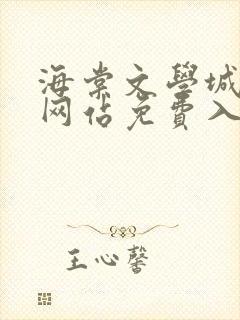 海棠文學城
网佔免費入
王心馨